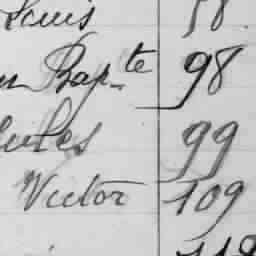 Louis 58
Bapte 98
Jules 99
Victor 109